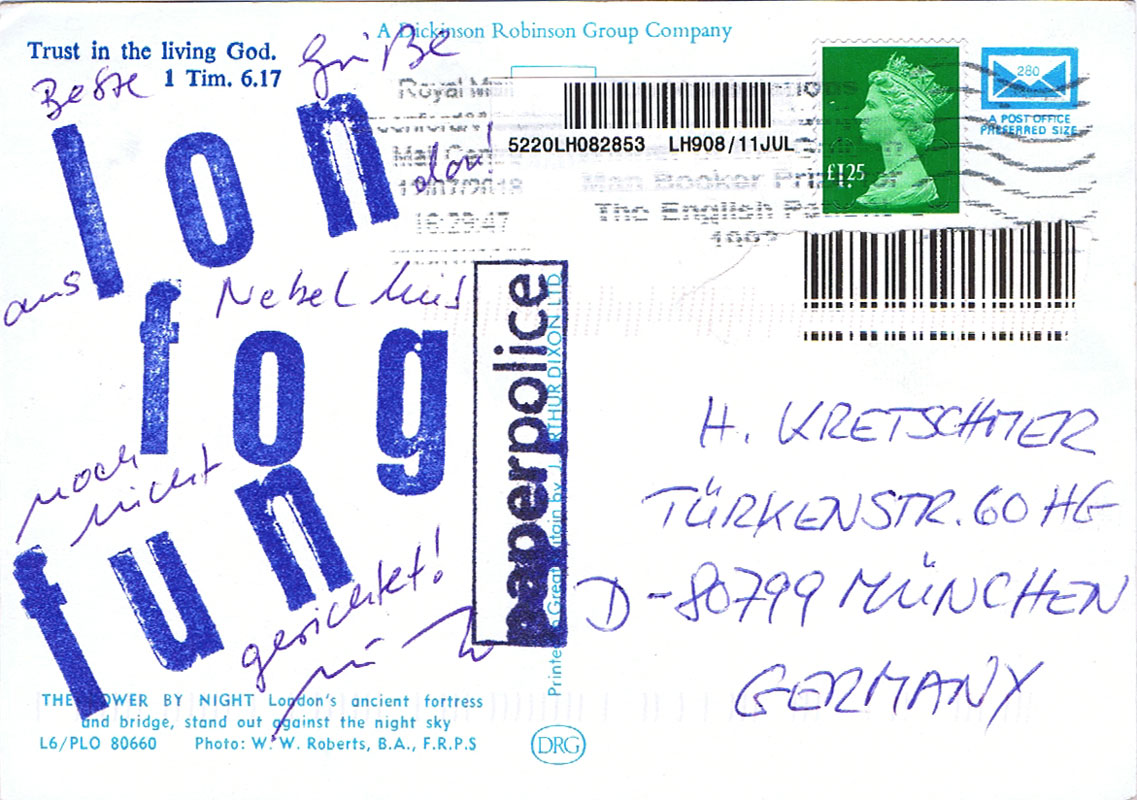 A Dickinson Robinson Group Company
Trust in the living God.
1 Tim. 6.17
Beste Grüße
lon
don!
aus Nebel
fog
noch
nicht
fun
gerichtet!
THE TOWER BY NIGHT London's ancient fortress
and bridge, stand out against the night sky
L6/PLO 80660 Photo: W. W. Roberts, B.A., F.R.P.S
paperpolice
Printed in Great Britain by J. ARTHUR DIXON LTD
DRG
Royal Mail
5220LH082853 LH908/11JUL
Man Booker Prize
The English Patient
£1.25
280
A POST OFFICE
PREFERRED SIZE
H. KRETSCHMER
TÜRKENSTR. 60 HG
D-80799 MÜNCHEN
GERMANY